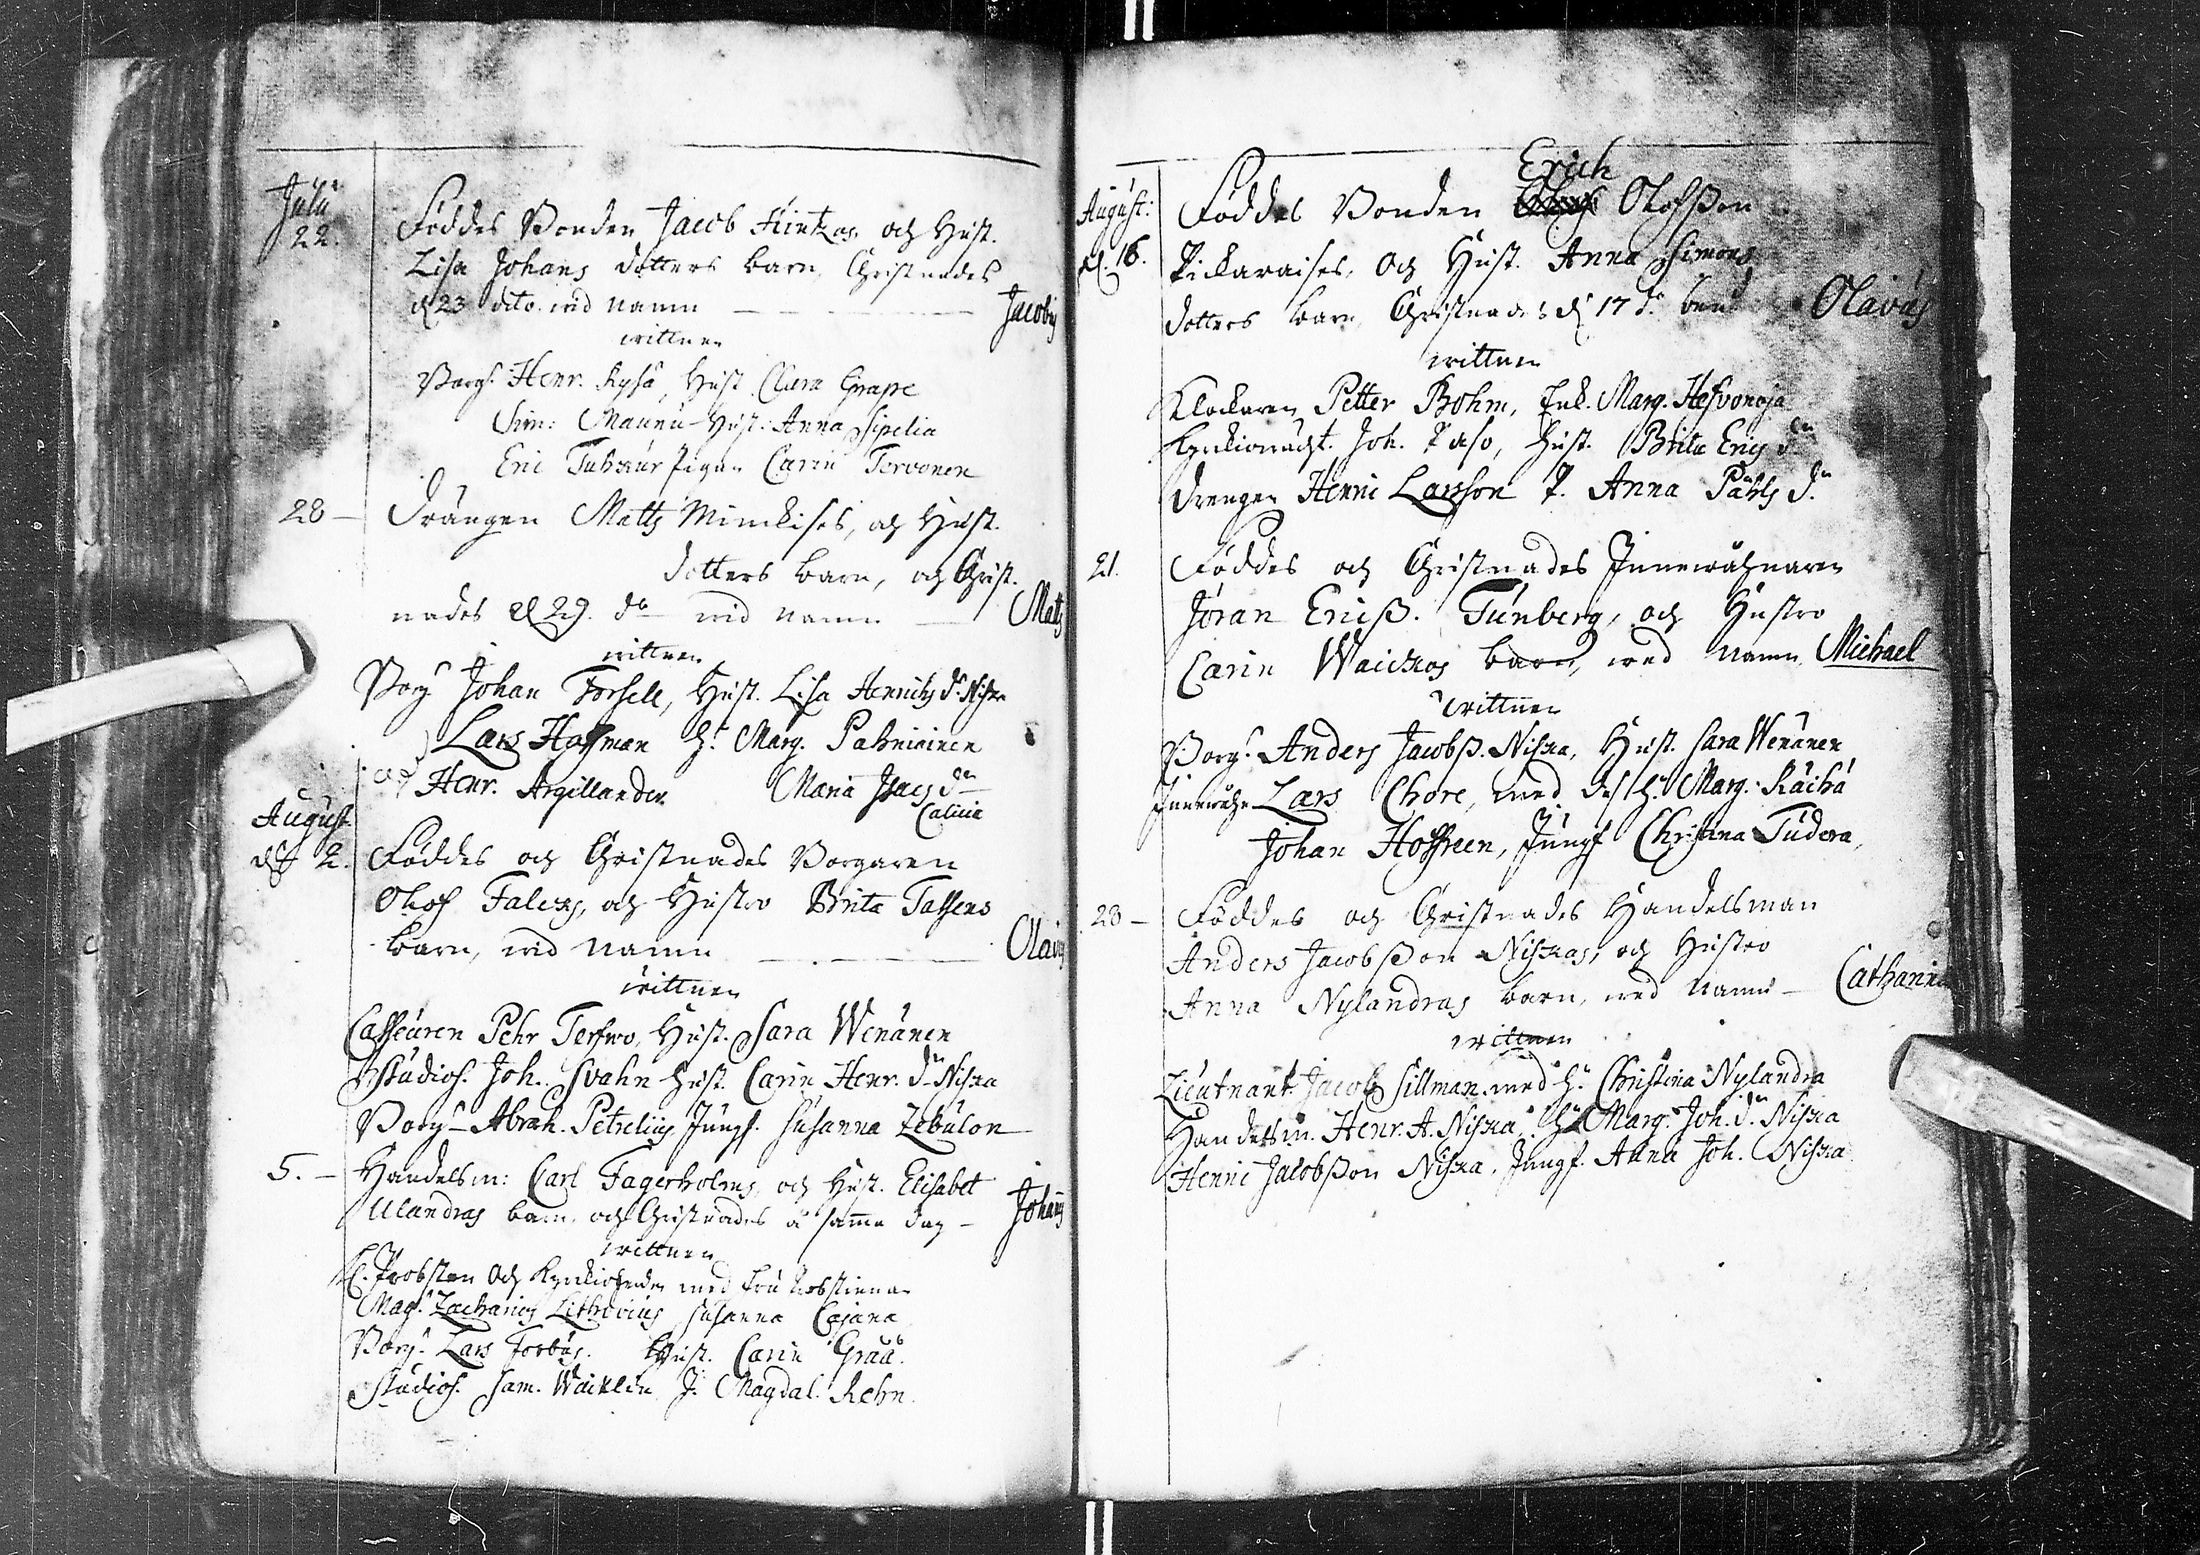 Julii
22. Föddes Bonden Jacob Hintzas och Hust.
Lisa Johans dotters barn, Christnades
d 23 dito. wid namn — Jacobus
wittnen
Borg. Henr. Kyhä, Hust. Clara Grape
Sim: Maunu Hust. Anna Sipelia
Eric Pigan Carin Tervonen
28 — Drängen Matts Mimkises, och Hust.
dotters barn, och Christ-
nades d 29. do wid namn — Matts
wittnen
Borg Johan Forsell, Hust. Lisa Henrichs dr Niska
Lars Hoffman H. Marg. Pahniainen
Henr. Argillander Maria Isacs dr
Calicia
August.
d 2. Föddes och Christnades Borgaren
Olof Falcks, och Hustro Brita Tassens
barn, wid namn — Olavus
wittnen
Casseuren Pehr Terfwo, Hust. Sara Wenänen
Studios. Joh. Svahn Hust. Carin Henr. dr Niska
Borg Abrah. Petrelius Jungf. Susanna Zebulon
5. — Handelsm: Carl Fagerholms, och Hust. Elisabet
Ulandras barn, och Christnades å samma dag — Johans
wittnen
H. Probsten och Kyrkioherden med fru Probstinnan
Mag. Zacharias Lithovius Susanna Cajana
Borg. Lars Forbus. Hust. Carin Graa.
Studios. Sam. Waiklin J. Magdal. Rehn.
August: Föddes Bonden Erich Olofsson
d. 16. Pickaraises, och Hust. Anna Simons
dotters barn, Christnades d 17 do Olavus
wittnen
Klockaren Petter Bohm, Enk. Marg. Hefvonoja
Kyrkiowacht. Joh. Paso, Hust. Brita Erics dr
Drengen Henric Larsson P. Anna Påhls dr
21. Föddes och Christnades Innewåhnaren
Jöran Ericss. Tunberg, och Hustro
Carin Waickos barn, med namn Michael
wittnen
Borg. Anders Jacobss. Niska, Hust. Sara Wenänen
Innewåhn Lars Chore, med dess H. Marg. Räihä
Johan Hoffreen, Jungf Christina Tudera,
28 — Föddes och Christnades Handelsman
Anders Jacobsson Niskas, och Hustro
Anna Nylandras barn, med namn — Catharina
wittnen
Lieutnant Jacob Sillman med H. Christina Nylandra
Handelsm. Henr. A. Niska, H. Marg. Joh. dr Niska
Henric Jacobsson Niska, Jungf. Anna Joh. Niska